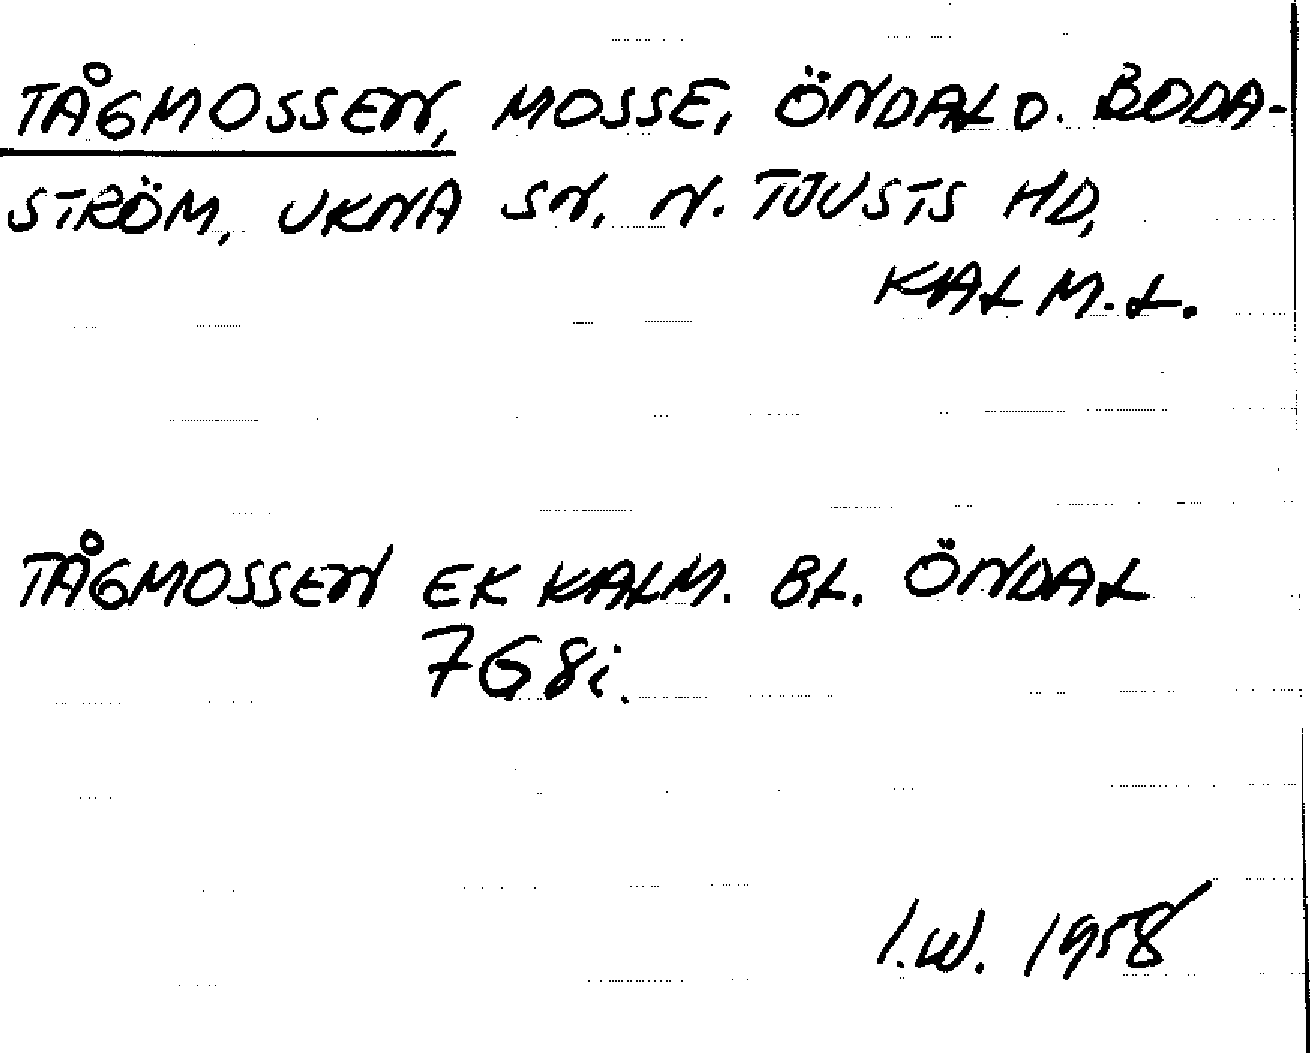 TÅGMOSSEN, MOSSE, ÖNDAL O. BODA-
STRÖM, UKNA SN, N. TJUSTS HD,
KALM.L.
TÅGMOSSEN EK KALM. BL. ÖNDAL
7G8i.
I.W. 1958